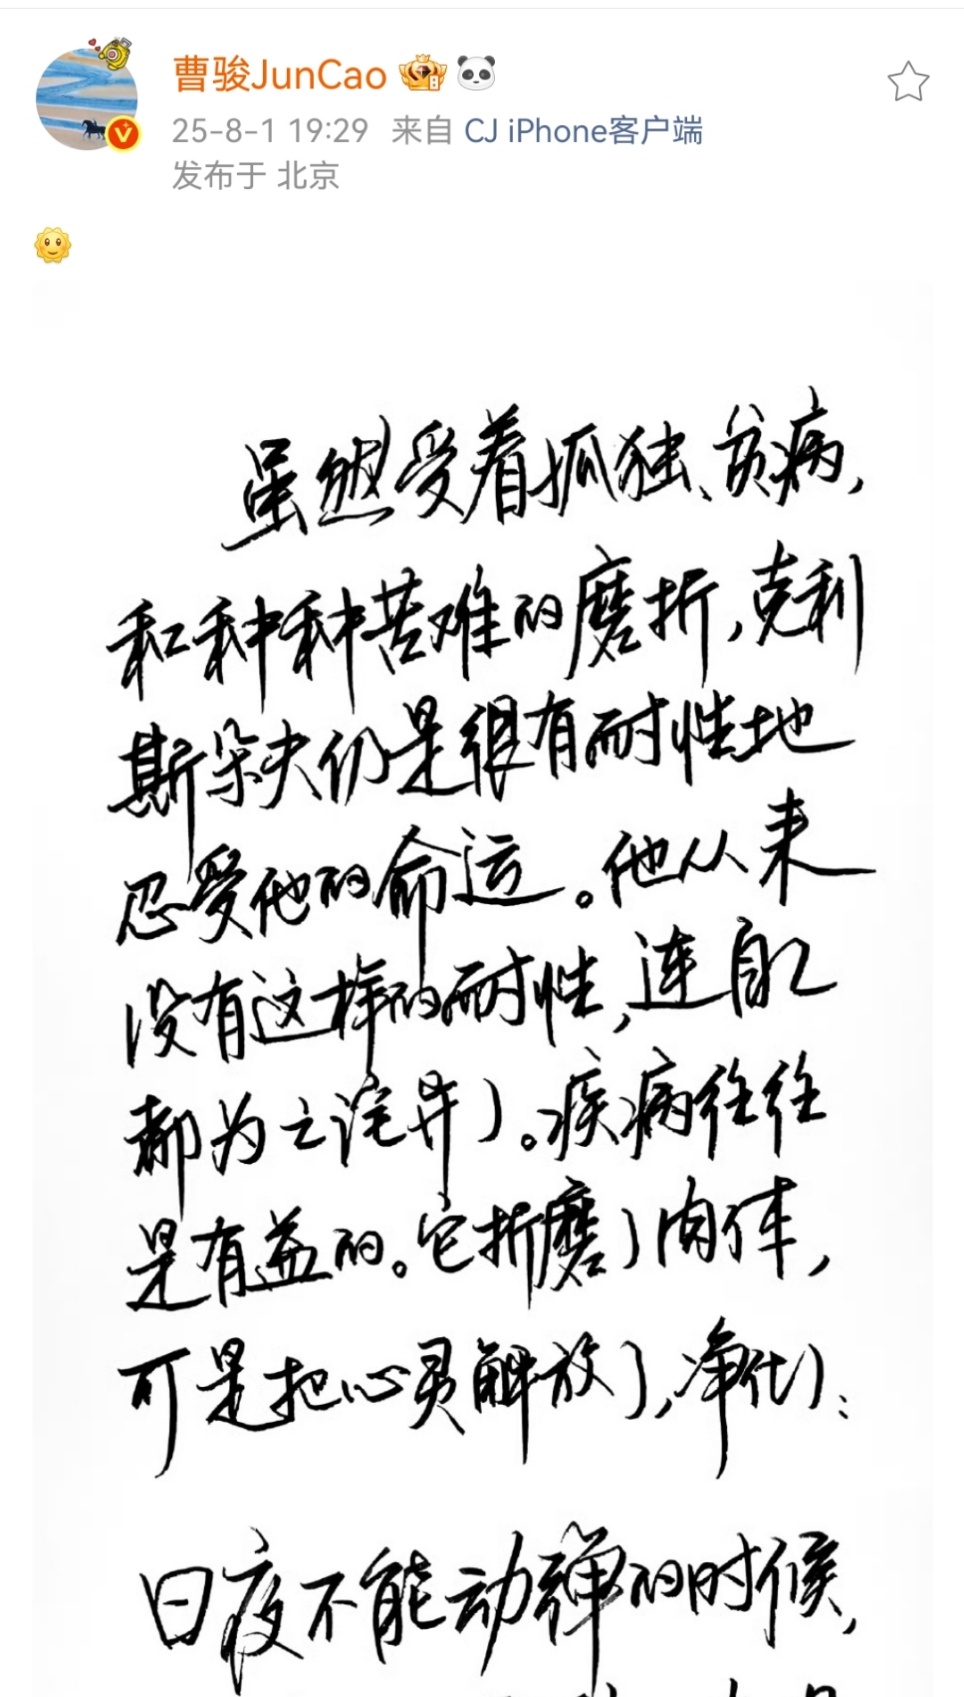 曹骏JunCao
25-8-1 19:29 来自 CJ iPhone客户端
发布于 北京
虽然受着孤独、贫病,
和种种苦难的磨折,克利
斯朵夫仍是很有耐性地
忍受他的命运。他从来
没有这样的耐性,连自己
都为之诧异了。疾病往往
是有益的。它折磨了肉体,
可是把心灵解放了,净化了:
日夜不能动弹的时候,